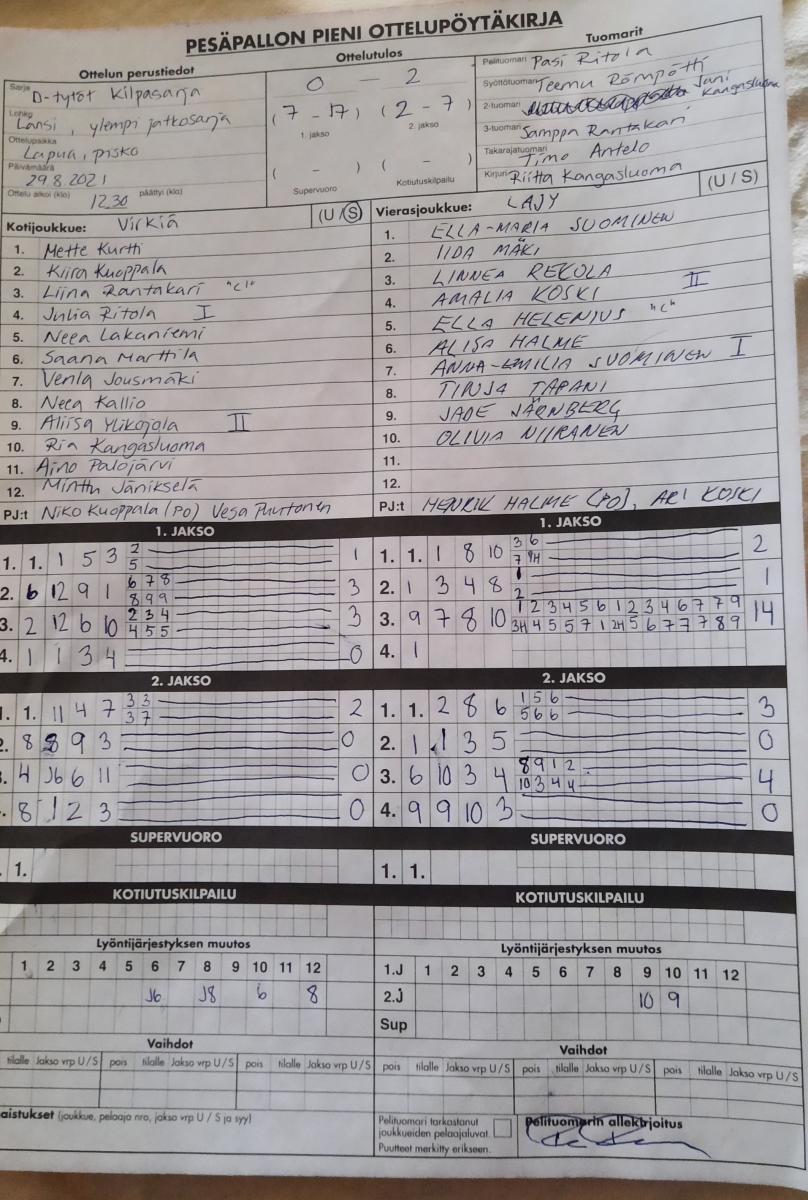 PESÄPALLON PIENI OTTELUPÖYTÄKIRJA
Ottelun perustiedot
Sarja D-tytöt Kilpasarja
Lohko Länsi, ylempi jatkosarja
Ottelupaikka Lapua, pisko
Päivämäärä 29.8.2021
Ottelu alkoi (klo) 12.30 päättyi (klo)
Ottelutulos
0 - 2
(7 - 17) (2 - 7)
1. jakso 2. jakso
( - ) ( - )
Supervuoro Kotiutuskilpailu
Tuomarit
Pelituomari Pasi Ritola
Syöttötuomari Teemu Römpötti
2-tuomari Jani Kangasluoma
3-tuomari Samppa Rantakari
Takarajatuomari Timo Antelo
Kirjuri Riitta Kangasluoma
Kotijoukkue: Virkiä (U/S)
1. Mette Kurtti
2. Kiira Kuoppala
3. Liina Rantakari "C"
4. Julia Ritola I
5. Neea Lakaniemi
6. Saana Marttila
7. Venla Jousmäki
8. Neea Kallio
9. Aliisa Ylikojola II
10. Ria Kangasluoma
11. Aino Palojärvi
12. Minttu Jänikselä
PJ:t Niko Kuoppala (PO) Vesa Puurtonen
Vierasjoukkue: LAJY (U/S)
1. ELLA-MARIA SUOMINEN
2. IIDA MÄKI
3. LINNEA REKOLA
4. AMALIA KOSKI II
5. ELLA HELENIUS "C"
6. ALISA HALME
7. ANNA-EMILIA SUOMINEN I
8. TINJA TAPANI
9. JADE JÄRNBERG
10. OLIVIA NIIRANEN
11.
12.
PJ:t HENRIK HALME (PO), ARI KOSKI
1. JAKSO
1. 1. 1 5 3 2 1
5
2. 6 12 9 1 6 7 8 3
8 9 9
3. 2 12 6 10 2 3 4 3
4 5 5
4. 1 1 3 4 0
1. JAKSO
1. 1. 1 8 10 3 6 2
7 9H
2. 1 3 4 8 1 1
2
3. 9 7 8 10 1 2 3 4 5 6 1 2 3 4 6 7 7 9 14
3H 4 5 5 7 1 2H 5 6 7 7 7 8 9
4. 1
2. JAKSO
1. 1. 11 4 7 3 3 2
3 7
2. 8 8 9 3 0
3. 4 J6 6 11 0
. 8 1 2 3 0
2. JAKSO
1. 1. 2 8 6 1 5 6 3
5 6 6
2. 1 1 3 5 0
3. 6 10 3 4 8 9 1 2 4
10 3 4 4
4. 9 9 10 3 0
SUPERVUORO
1.
SUPERVUORO
1. 1.
KOTIUTUSKILPAILU
KOTIUTUSKILPAILU
Lyöntijärjestyksen muutos
1 2 3 4 5 6 7 8 9 10 11 12
J6 J8 6 8
Lyöntijärjestyksen muutos
1.J 1 2 3 4 5 6 7 8 9 10 11 12
2.J 10 9
Sup
Vaihdot
tilalle Jakso vrp U/S pois tilalle Jakso vrp U/S pois tilalle Jakso vrp U/S
Vaihdot
pois tilalle Jakso vrp U/S pois tilalle Jakso vrp U/S pois tilalle Jakso vrp U/S
aistukset (joukkue, pelaaja nro, jakso vrp U / S ja syy)
Pelituomari tarkastanut
joukkueiden pelaajaluvat.
Puutteet merkitty erikseen.
Pelituomarin allekirjoitus